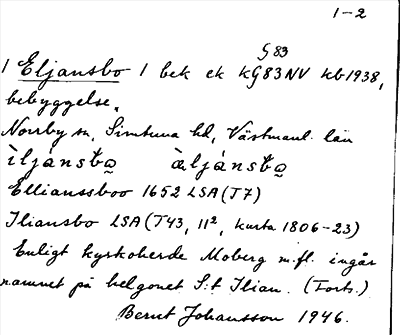 1-2
§ 83
1 Eljansbo 1 bek ek k§83NV kb1938,
bebyggelse.
Norrby sn, Simtuna hd, Västmanl. län
ìljánsbo àljánsbo
Ellianssboo 1652 LSA (T7)
Iliansbo LSA (T43, 11², karta 1806-23)
Enligt kyrkoherde Moberg m.fl. ingår
namnet på helgonet S:t Ilian. (Forts.)
Bernt Johansson 1946.